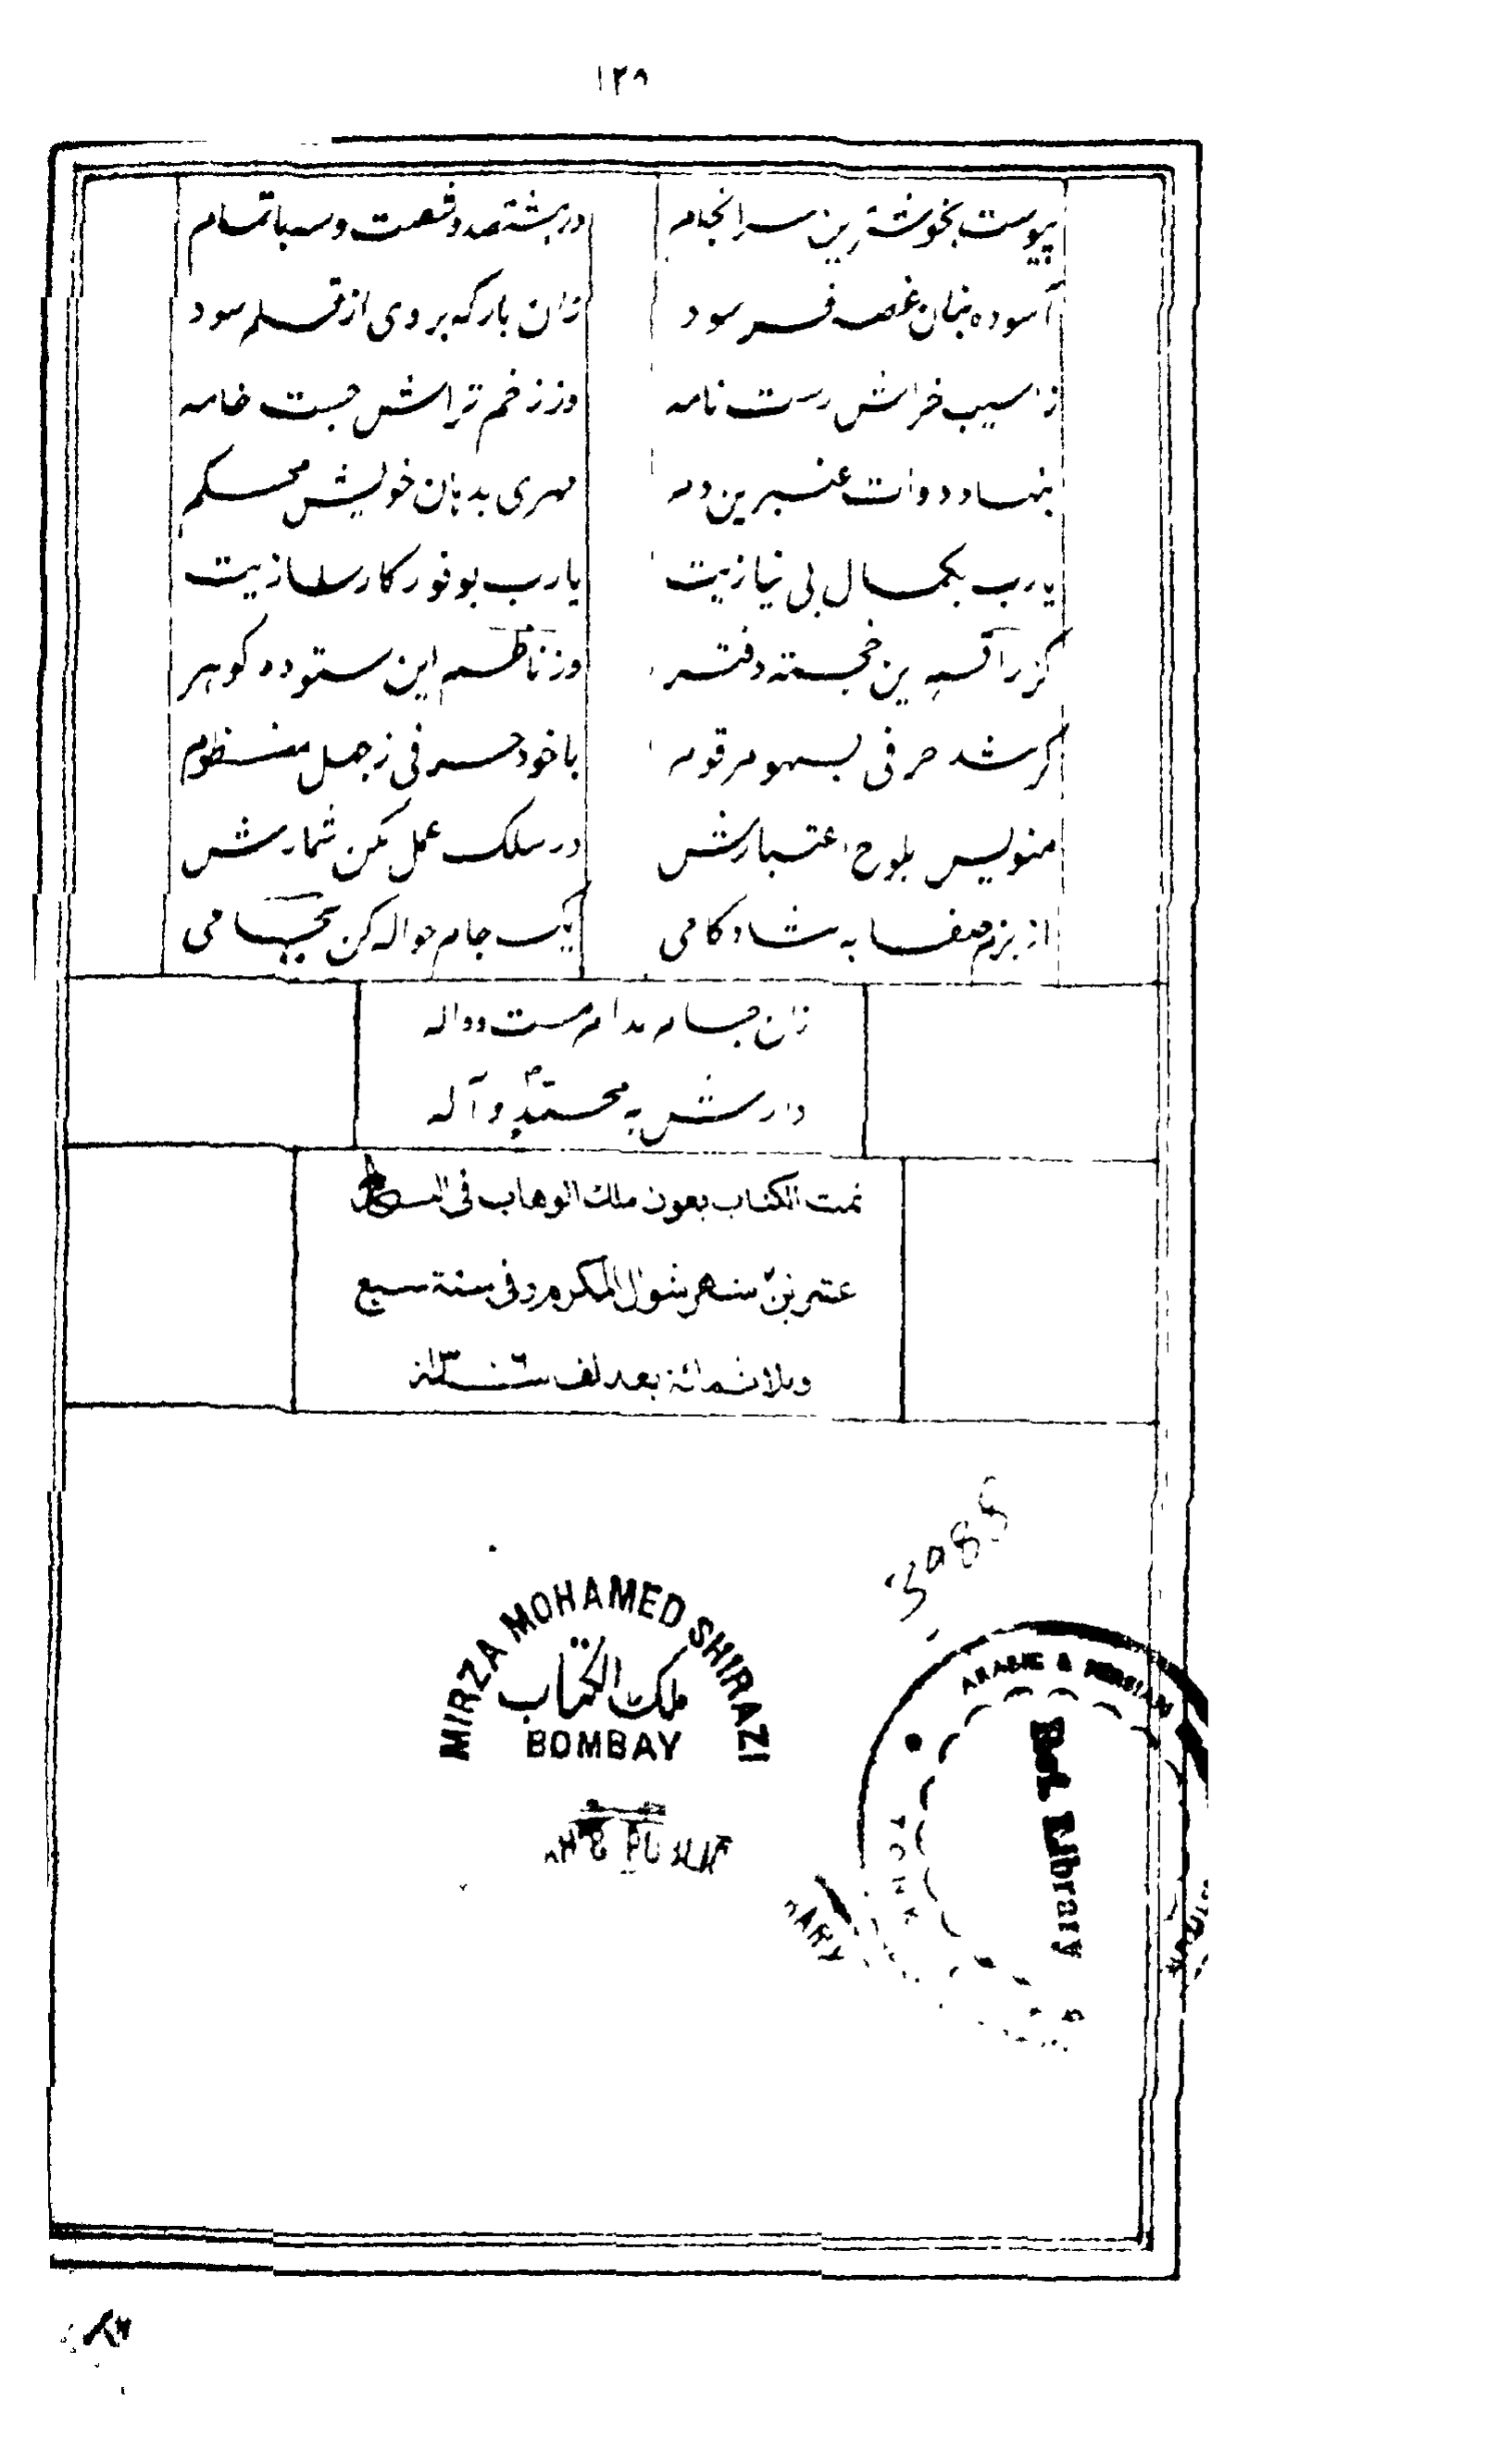 ۱۲۸
پیوست بخوشترین سرانجام در هشتصد و شصت و سه با تمام
آسوده بنان غصه فرسود زان بار که بر وی از قلم سود
زاسیب خراش رست نامه وز زخم تراش جست خامه
بنهاد دوات عنبرین دم مهری بدهان خویش محکم
یارب بکمال بی نیازیت یارب بوفور کارسازیت
کز راقم این خجسته دفتر وز ناظم این ستوده گوهر
گر شد حرفی بسهو مرقوم یا خود حرفی ز جهل منظوم
منویس بلوح اعتبارش در سلک عمل مکن شمارش
از بزم صفا به شادکامی یک جام حواله کن بجامی
زان جام مدام مست و واله
دارش به محمد و آله
تمت الکتاب بعون ملك الوهاب فی
عشرین شهر شوال المکرم و فی سنة سبع
وثلاثمائة بعد الف
3985
MIRZA MOHAMED SHIRAZI
ملک الکتاب
BOMBAY
ARABIC & PERSIAN
Library
TONK